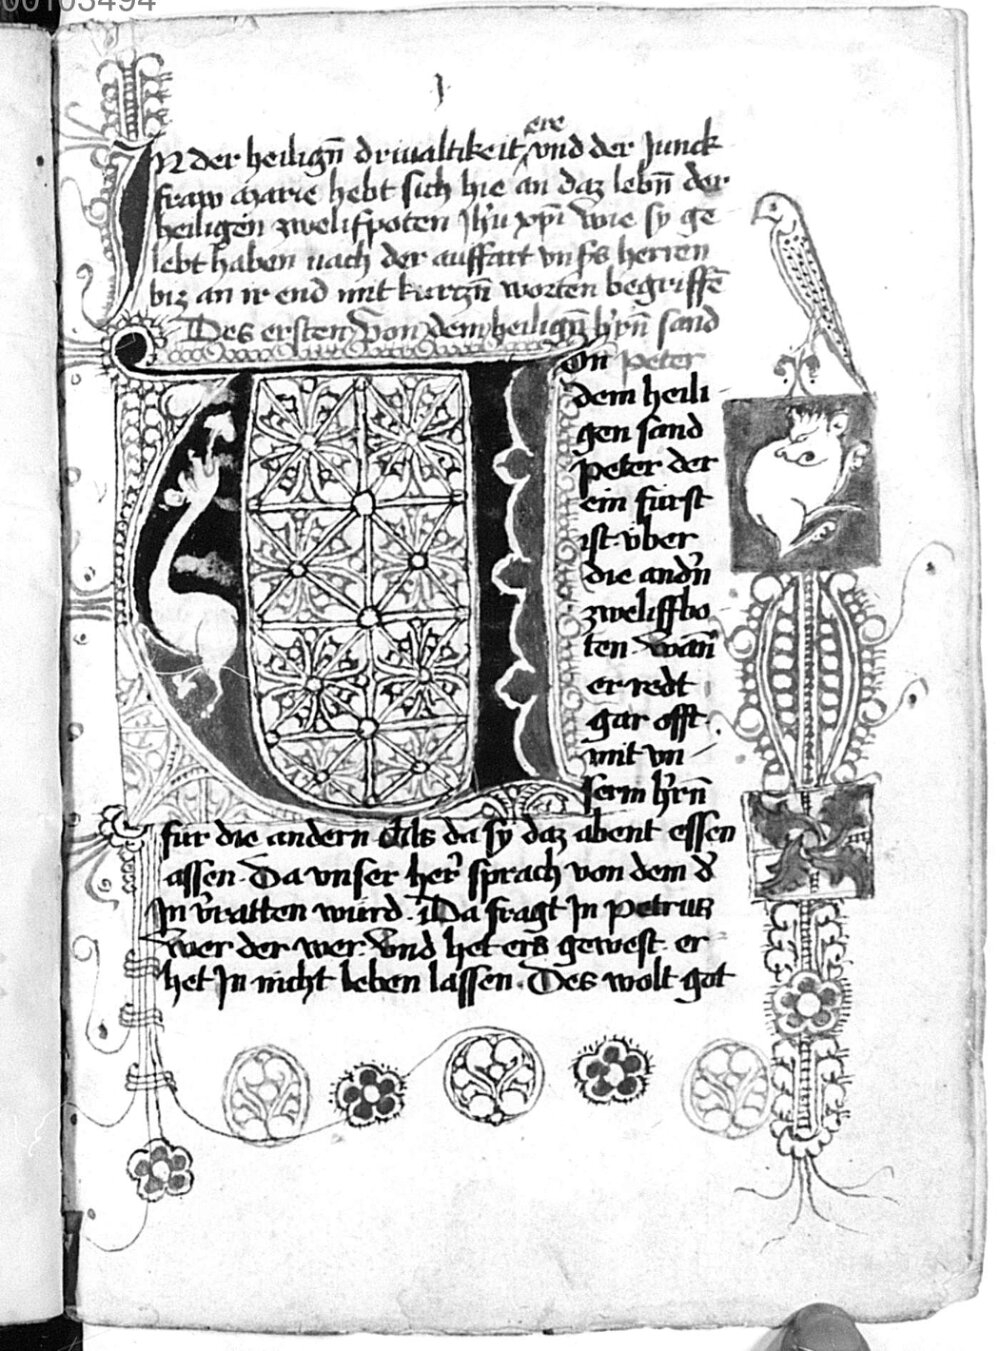 00103494
1
ere
IN der heilign̄ driualtikeit vnd der Junck
fraw Marie hebt sich hie an daz lebn̄ der
heiligen zwelifpoten Jh̄u xp̄i wie sy ge
lebt haben nach der auffart vnsʼs herren
biz an ir end mit kurczn̄ worten begriffē
Des ersten von dem heilign̄ hʼrn̄ sand
Von peter
dem heili
gen sand
Peter der
ein furst
ist vber
die andʼn
zweliffbo
ten. wān
er redt
gar offt
mit vn
serm hʼrn̄
fur die andern Als da sy daz abent essen
assen. Da vnser herʼ sprach von dem dʼ
Jn vʼratten würd. Da fragt Jn petrus
wer der wer. vnd het ers gewest. er
het Jn nicht leben lassen. Des wolt got